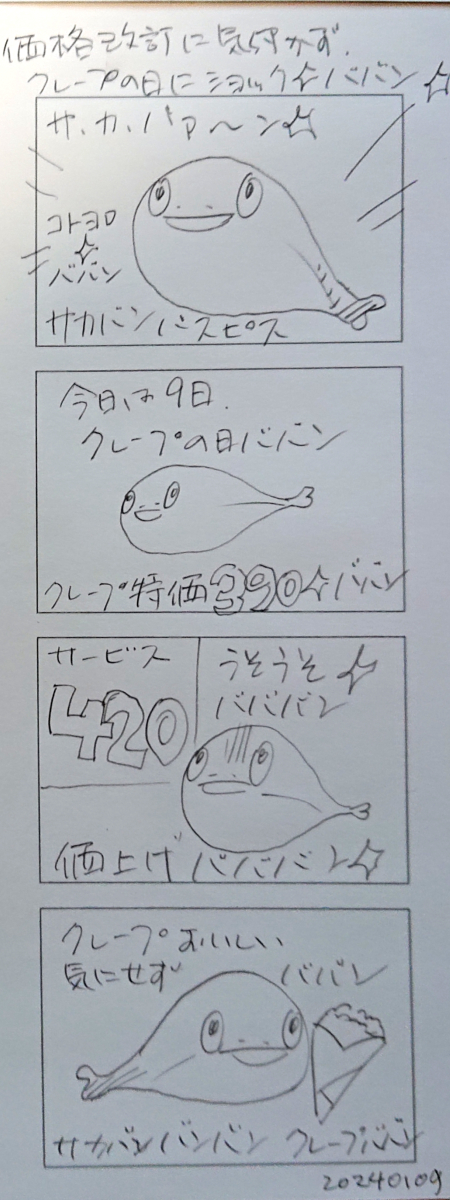 価格改訂に気付かず、
クレープの日にショック☆ババン☆
サ、カ、バァ〜ン☆
コトヨロ
☆
ババン
サカバンバスピス
今日は9日、
クレープの日ババン
クレープ特価390☆ババン
サービス
420
うそうそ☆
バババン
価上げバババン☆
クレープおいしい
気にせず ババン
サカバンバンバン クレープババン
20240109